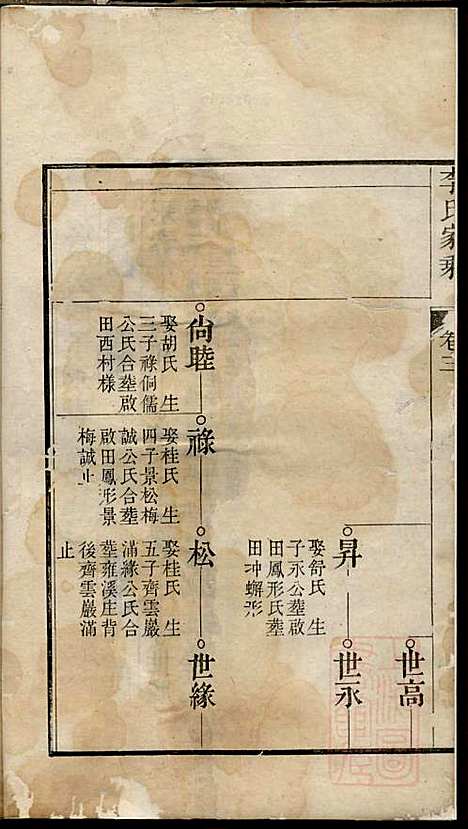 李氏家乘
卷三
世高
昇
娶舒氏 生
子永公塟啟
田鳳形氏塟
田冲蠏形
世永
尙睦
娶胡氏 生
三子祿侗儒
公氏合塟啟
田西村樣
祿
娶桂氏 生
四子景松梅
誠公氏合塟
啟田鳳形景
梅誠止
松
娶桂氏 生
五子齊雲嚴
滿緣公氏合
塟雍溪庄背
後齊雲嚴滿
止
世緣